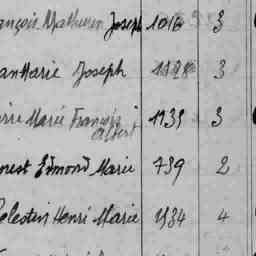 ançois Mathurin Joseph 1016 3
an Marie Joseph 1128 3
rre Marie François Albert 1135 3
nest Edmond Marie 739 2
élestin Henri Marie 1134 4